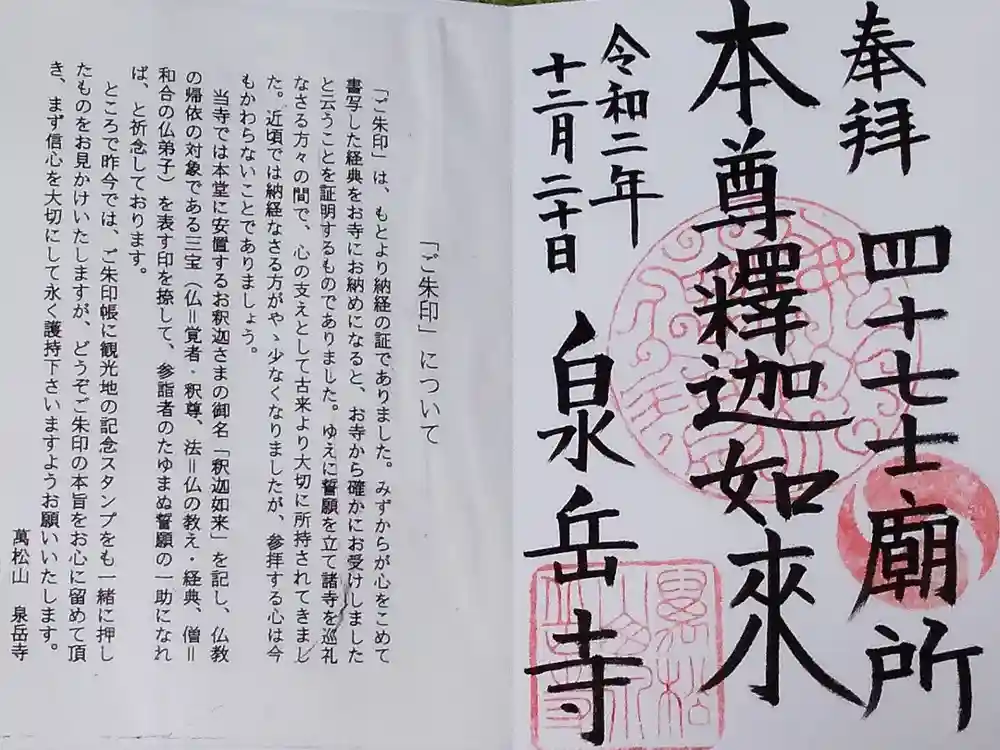 奉拜 四十七士廟所
本尊釋迦如來
令和二年
十二月二十日 泉岳寺
「ご朱印」について
「ご朱印」は、もとより納経の証でありました。みずからが心をこめて
書写した経典をお寺にお納めになると、お寺から確かにお受けしました
と云うことを証明するものでありました。ゆえに誓願を立て諸寺を巡礼
なさる方々の間で、心の支えとして古来より大切に所持されてきまし
た。近頃では納経なさる方がやゝ少なくなりましたが、参拝する心は今
もかわらないことでありましょう。
当寺では本堂に安置するお釈迦さまの御名「釈迦如来」を記し、仏教
の帰依の対象である三宝（仏＝覚者・釈尊、法＝仏の教え・経典、僧＝
和合の仏弟子）を表す印を捺して、参詣者のたゆまぬ誓願の一助になれ
ば、と祈念しております。
ところで昨今では、ご朱印帳に観光地の記念スタンプをも一緒に押し
たものをお見かけいたしますが、どうぞご朱印の本旨をお心に留めて頂
き、まず信心を大切にして永く護持下さいますようお願いいたします。
萬松山 泉岳寺